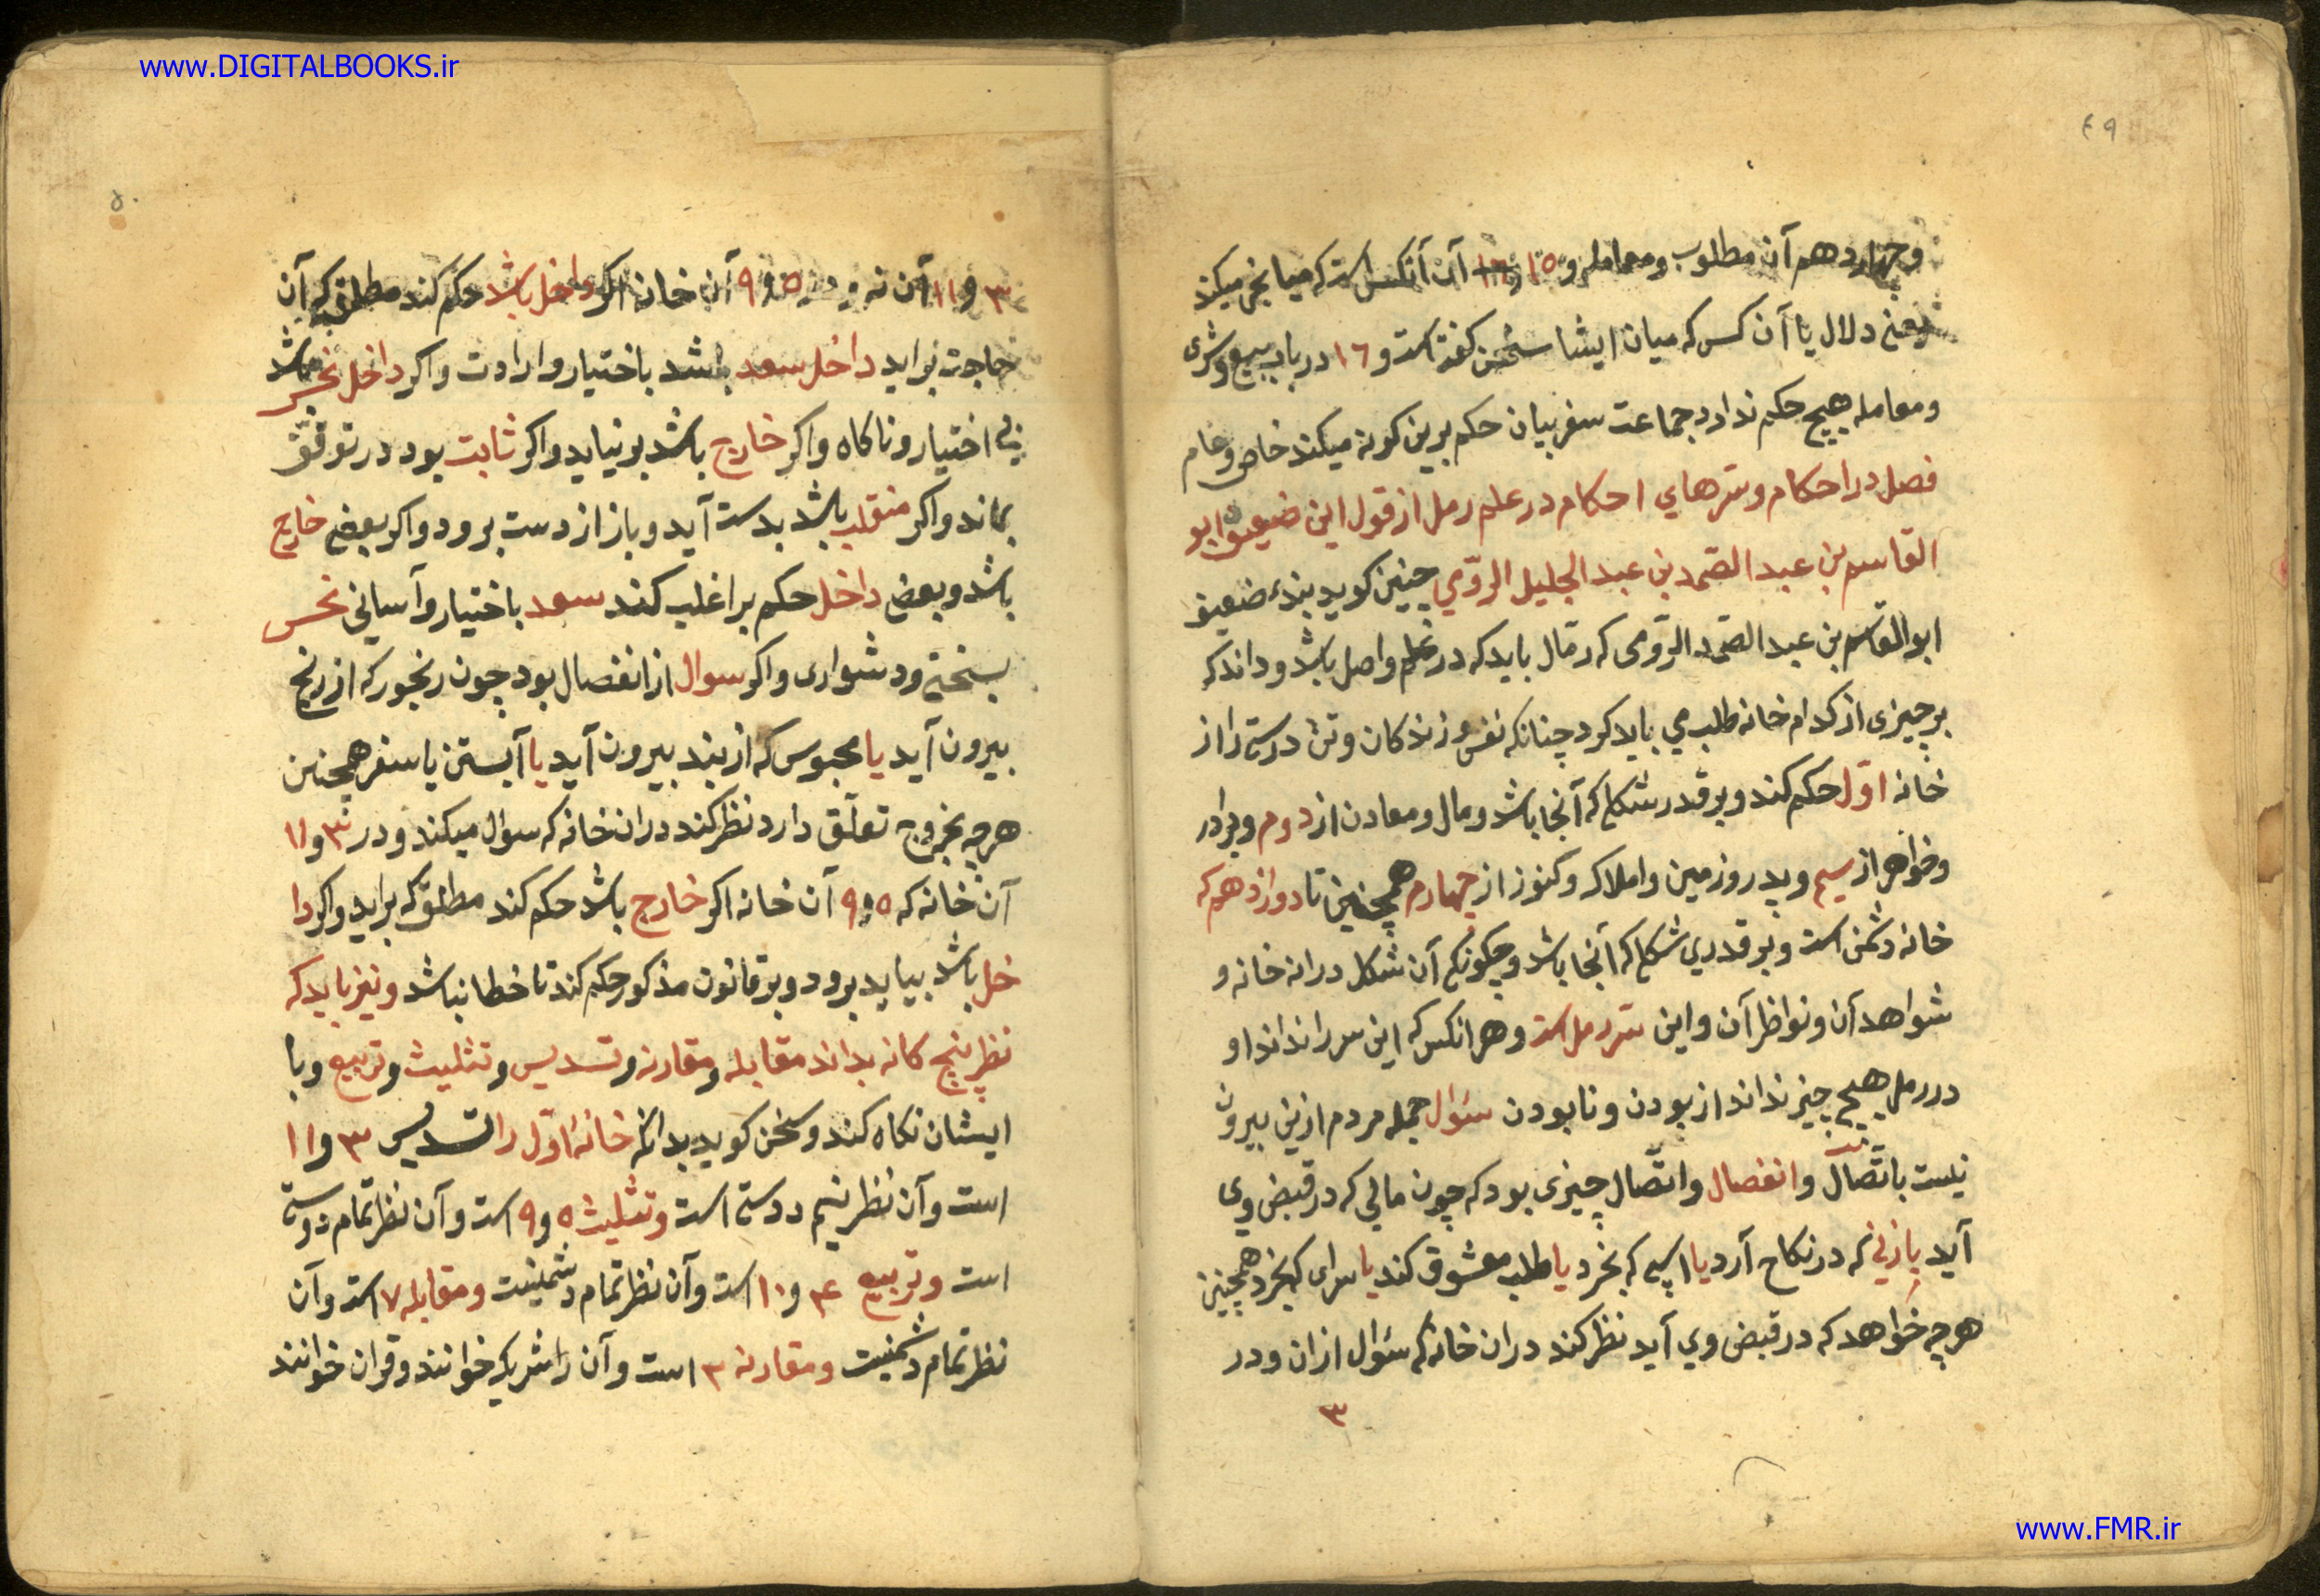 www.DIGITALBOOKS.ir
٤٩
وچهاردهم آن مطلوب ومعامله و ١٥ آن آنکس است که میانجی میکند
یعنی دلال یا آن کس که میان ایشا سخن کفته است و ١٦ در باب بیع وشری
ومعامله هیچ حکم ندارد جماعت سفر بیان حکم برین کونه میکند خاص وعام
فصل در احکام وسرهاي احکام در علم رمل از قول این ضعیف ابو
القاسم بن عبد الصمد بن عبد الجلیل الرومي چنین کوید بندۀ ضعیف
ابو القاسم بن عبد الصمد الرومی که رمال باید که در علم واصل باشد وداند که
هر چیزی از کدام خانه طلب مي باید کرد چنانکه نفس وزندکان وتن درستی را از
خانه اول حکم کند وبر قدر شکلی که آنجا باشد ومال ومعادن از دوم وبرادر
وخواهر از سیم وپدر وزمین واملاک وکنوز از چهارم همچنین تا دوازدهم که
خانه دشمن است وبر قدري شکلی که آنجا باشد وچکونکی آن شکل دران خانه و
شواهد آن ونواظر آن واین سر رمل است وهر انکس که این سر را نداند او
در رمل هیچ چیز نداند از بودن ونابودن سئوال جمله مردم ازین بیرون
نیست باتصال وانفصال واتصال چیزی بود که چون مالی که در قبض وی
آید یا زنی که در نکاح آرد یا اسپی که بخرد یا طلب معشوق کند یا سرای که بخرد همچنین
هرچه خواهد که در قبض وي آید نظر کند دران خانه که سئوال ازان ودر
٣
٥٠
٣ و ١١ آن نه ودر ٥ و ٩ آن خانه اکر داخل باشد حکم کند مطلق که آن
حاجت براید داخل سعد باشد باختیار وارادت واکر داخل نحس باشد
بی اختیار وناکاه واکر خارج باشد بر نیاید واکر ثابت بود در توقف
بماند واکر منقلب باشد بدست آید وباز از دست برود واکر بعضی خارج
باشد وبعضی داخل حکم بر اغلب کند سعد باختیار وآسانی نحس
بسختی ودشواری واکر سوال از انفصال بود چون رنجور که از رنج
بیرون آید یا محبوس که از بند بیرون آید یا آبستن یا سفر همچنین
هرچه بخروج تعلق دارد نظر کند دران خانه که سوال میکند ودر ٣ و ١١
آن خانه که ٥ و ٩ آن خانه اکر خارج باشد حکم کند مطلق که براید واکر دا
خل باشد بیاید برود وبر قانون مذکور حکم کند تا خطا نباشد ونیز باید که
نظر پنج کانه بداند مقابله ومقارنه وتسدیس وتثلیث وتربیع وبا
ایشان نکاه کند وسخن کوید بدانکه خانۀ اول را تسدیس ٣ و ١١
است وآن نظر نیم دوستی است وتثلیث ٥ و ٩ است وآن نظر تمام دوستی
است وتربیع ۴ و ١٠ است وآن نظر تمام دشمنیست ومقابله ٧ است وآن
نظر تمام دشمنیست ومقارنه ٢ است وآن را شریک خوانند وقران خوانند
www.FMR.ir